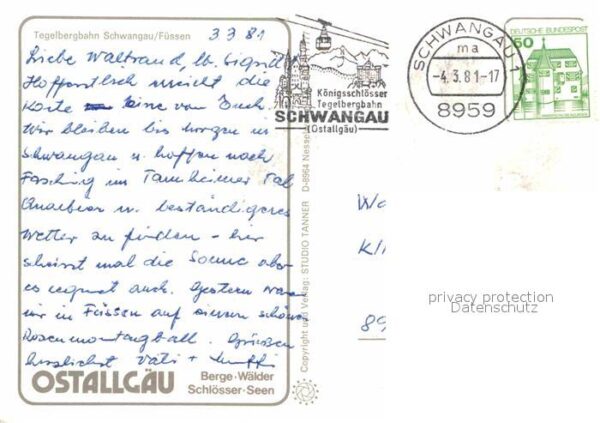 Tegelbergbahn Schwangau/Füssen
3 3 81
Liebe Waltraud, lb. Sigrid
Hoffentlich reicht die
Karte eine von Euch.
Wir bleiben bis morgen in
Schwangau u. hoffen nach
Fasching im Tannheimer Tal
Quartier u. beständigeres
Wetter zu finden - hier
scheint mal die Sonne aber
es regnet auch. Gestern waren
wir in Füssen auf einem schönen
Rosenmontagball. Grüßen
herzlichst Vati + Mutti
OSTALLGÄU
Berge·Wälder
Schlösser·Seen
Copyright und Verlag: STUDIO TANNER D-8964 Nessel
Königsschlösser
Tegelbergbahn
SCHWANGAU
(Ostallgäu)
SCHWANGAU 1
ma
-4.3.81-17
8959
DEUTSCHE BUNDESPOST
50
privacy protection
Datenschutz